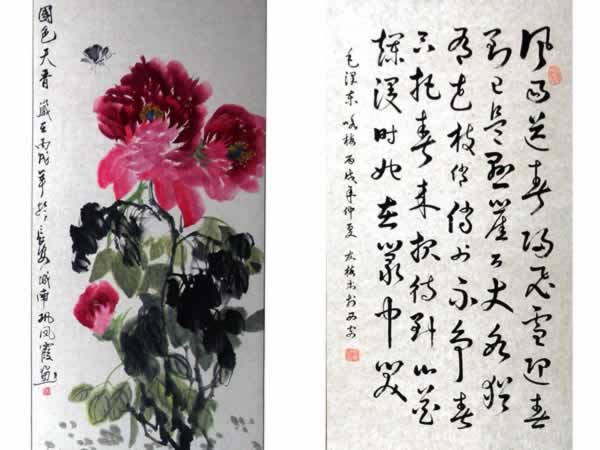 國色天香 歲在丙戌年於長安城南巩凤霞画
風雨送春歸飛雪迎春
到已是懸崖百丈冰猶
有花枝俏俏也不爭春
只把春来報待到山花
爛漫時她在叢中笑
毛澤东咏梅 丙戌年仲夏 友梅书於西安